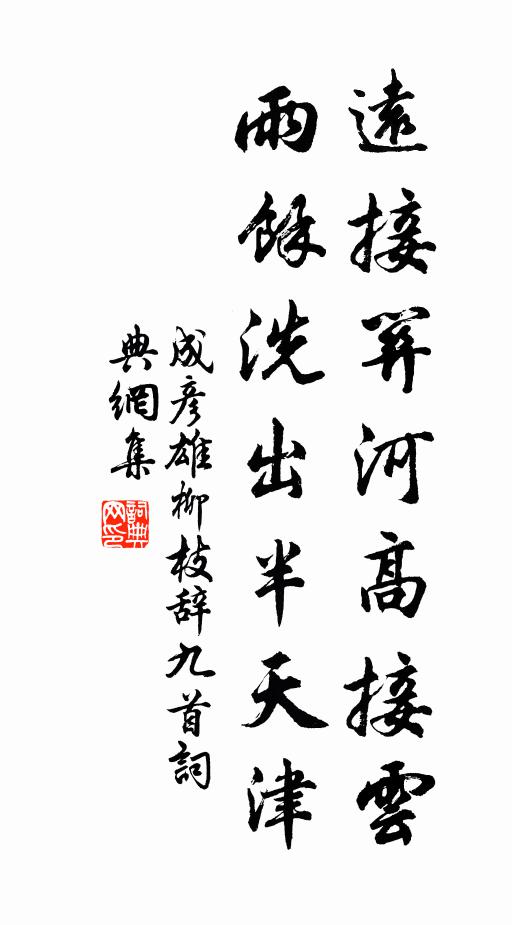 遠接關河高接雲
雨餘洗出半天津
成彥雄柳枝辞九首詞
典網集
詞典网印